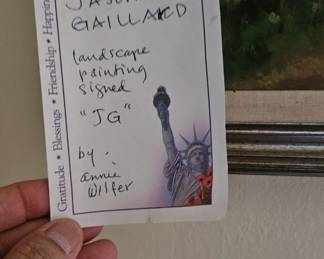 GAILLARD
landscape
painting
signed
"JG"
by.
annie
Wilfer
Gratitude • Blessings • Friendship • Happin